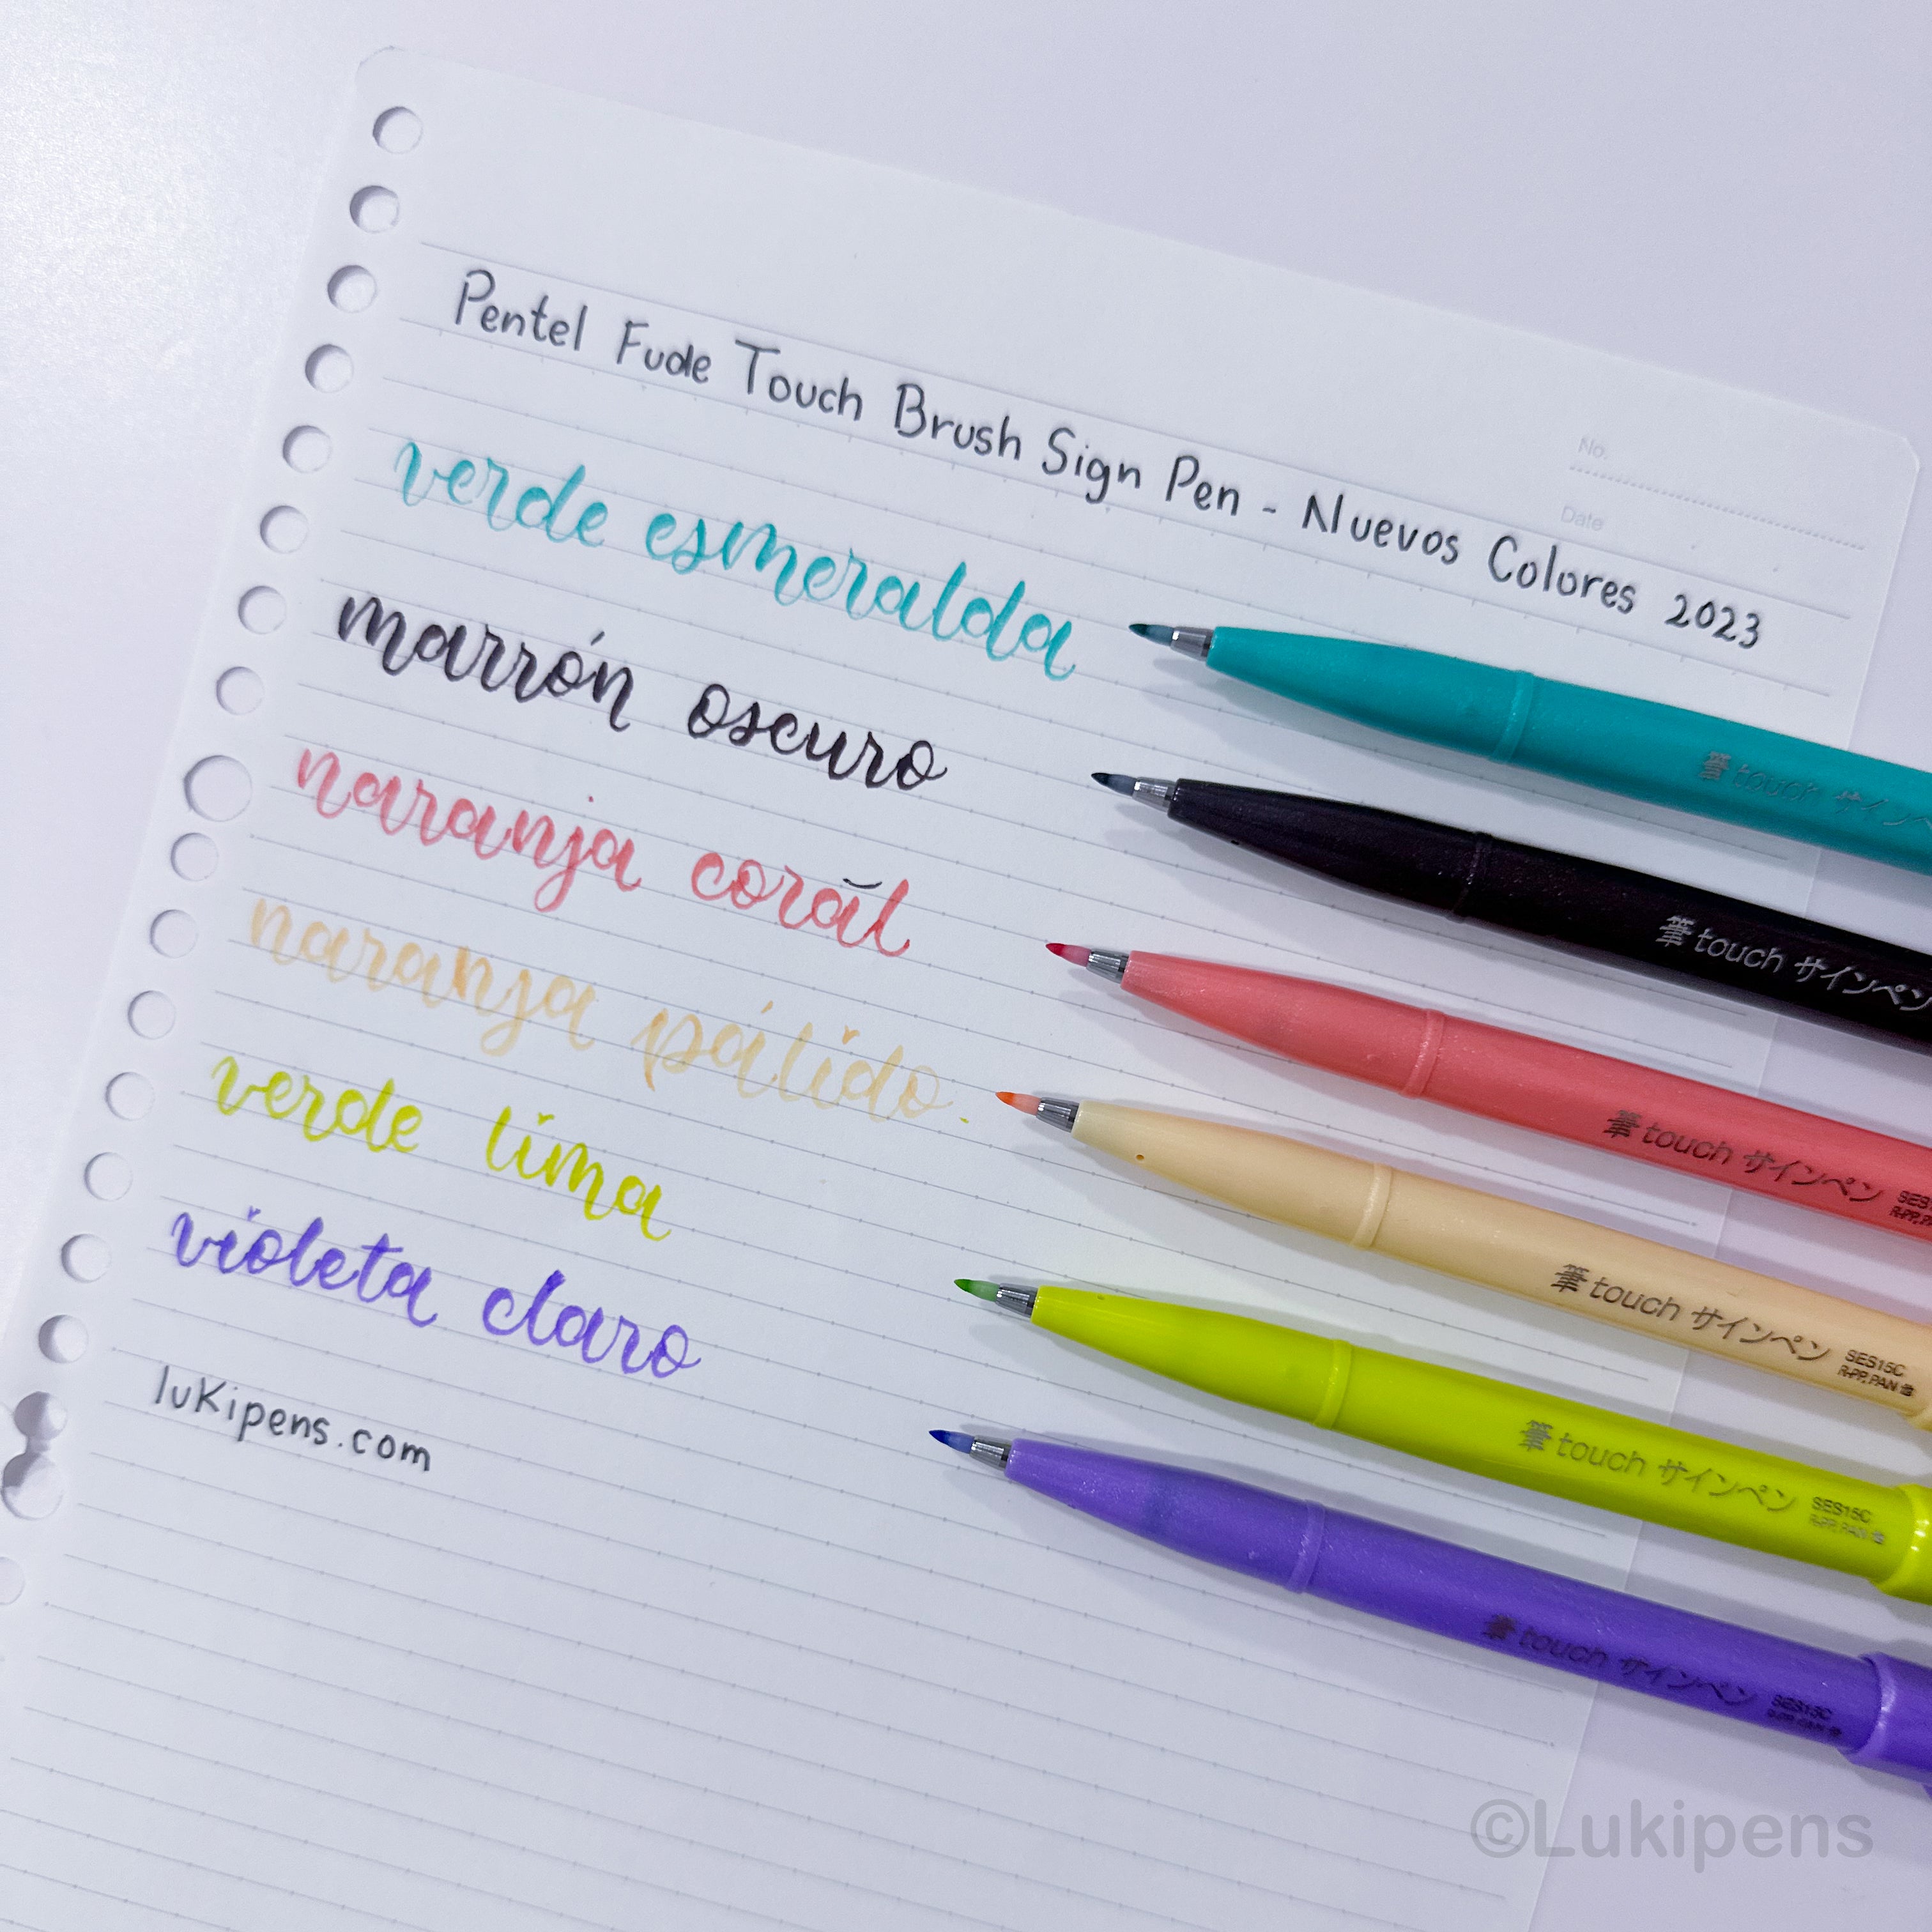 No.
Date
Pentel Fude Touch Brush Sign Pen - Nuevos Colores 2023
verde esmeralda
marrón oscuro
naranja coral
naranja pálido.
verde lima
violeta claro
lukipens.com
筆touch サイン
筆touch サインペン
筆touch サインペン SES
筆touch サインペン SES15C
R-PP, PAN
筆touch サインペン SES15C
R-PP, PAN
筆touch サインペン SES15C
R-PP, PAN
©Lukipens